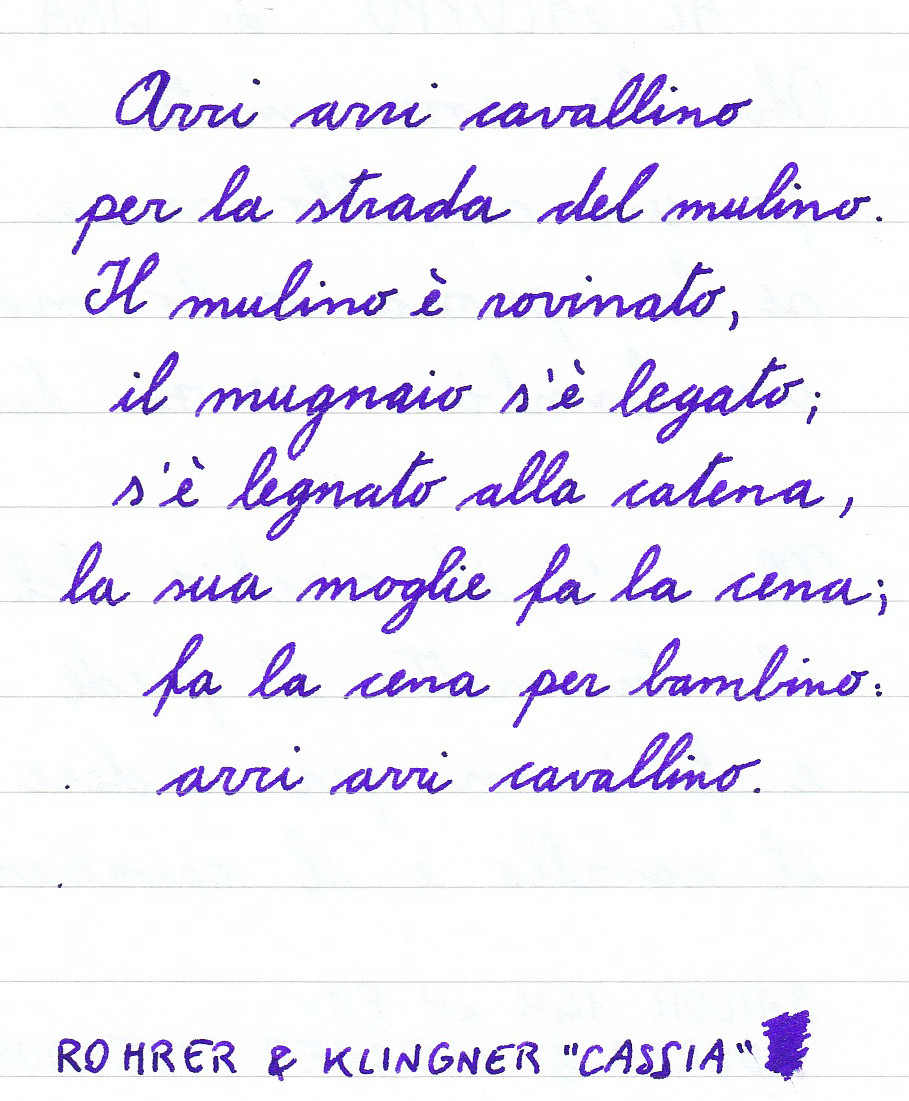 Arri arri cavallino
per la strada del mulino.
Il mulino è rovinato,
il mugnaio s'è legato;
s'è legnato alla catena,
la sua moglie fa la cena;
fa la cena per bambino:
arri arri cavallino.
ROHRER & KLINGNER "CASSIA"